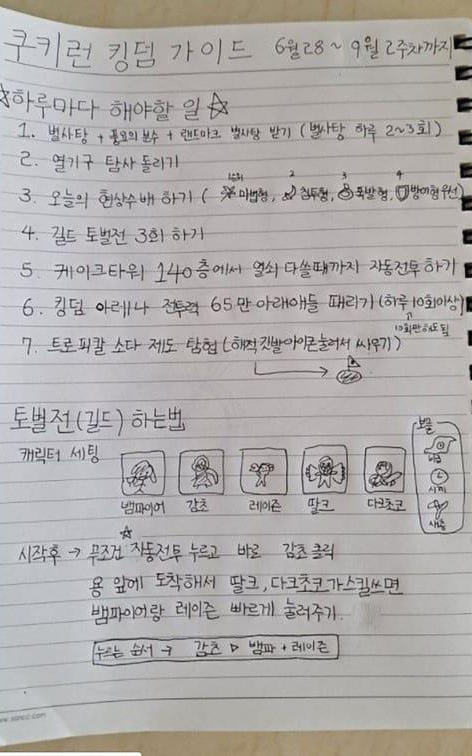 쿠키런 킹덤 가이드 6월28 ~ 9월 2주차까지
☆하루마다 해야할 일☆
1. 별사탕 + 풍요의 분수 + 랜드마크 별사탕 받기 (별사탕 하루 2~3회)
2. 열기구 탐사 돌리기
3. 오늘의 현상수배 하기 ( 마법형, 2 침투형, 3 폭발형, 4 방어형 우선)
4. 길드 토벌전 3회 하기
5. 케이크타워 140층에서 열쇠 다쓸때까지 자동전투 하기
6. 킹덤 아레나 전투력 65만 아래애들 때리기 (하루 10회이상)
10회만해도됨
7. 트로피칼 소다 제도 탐험 (해적 깃발아이콘눌어서 싸우기)
토벌전(길드) 하는법
캐릭터 세팅
뱀파이어 감초 레이즌 딸크 다크초코
보물
시계
시작후 → 무조건 자동전투 누르고 바로 감초 클릭
용 앞에 도착해서 딸크, 다크초코가스킬쓰면
뱀파이어랑 레이즌 빠르게 눌러주기.
누르는 순서 → 감초 ▷ 뱀파 + 레이즌